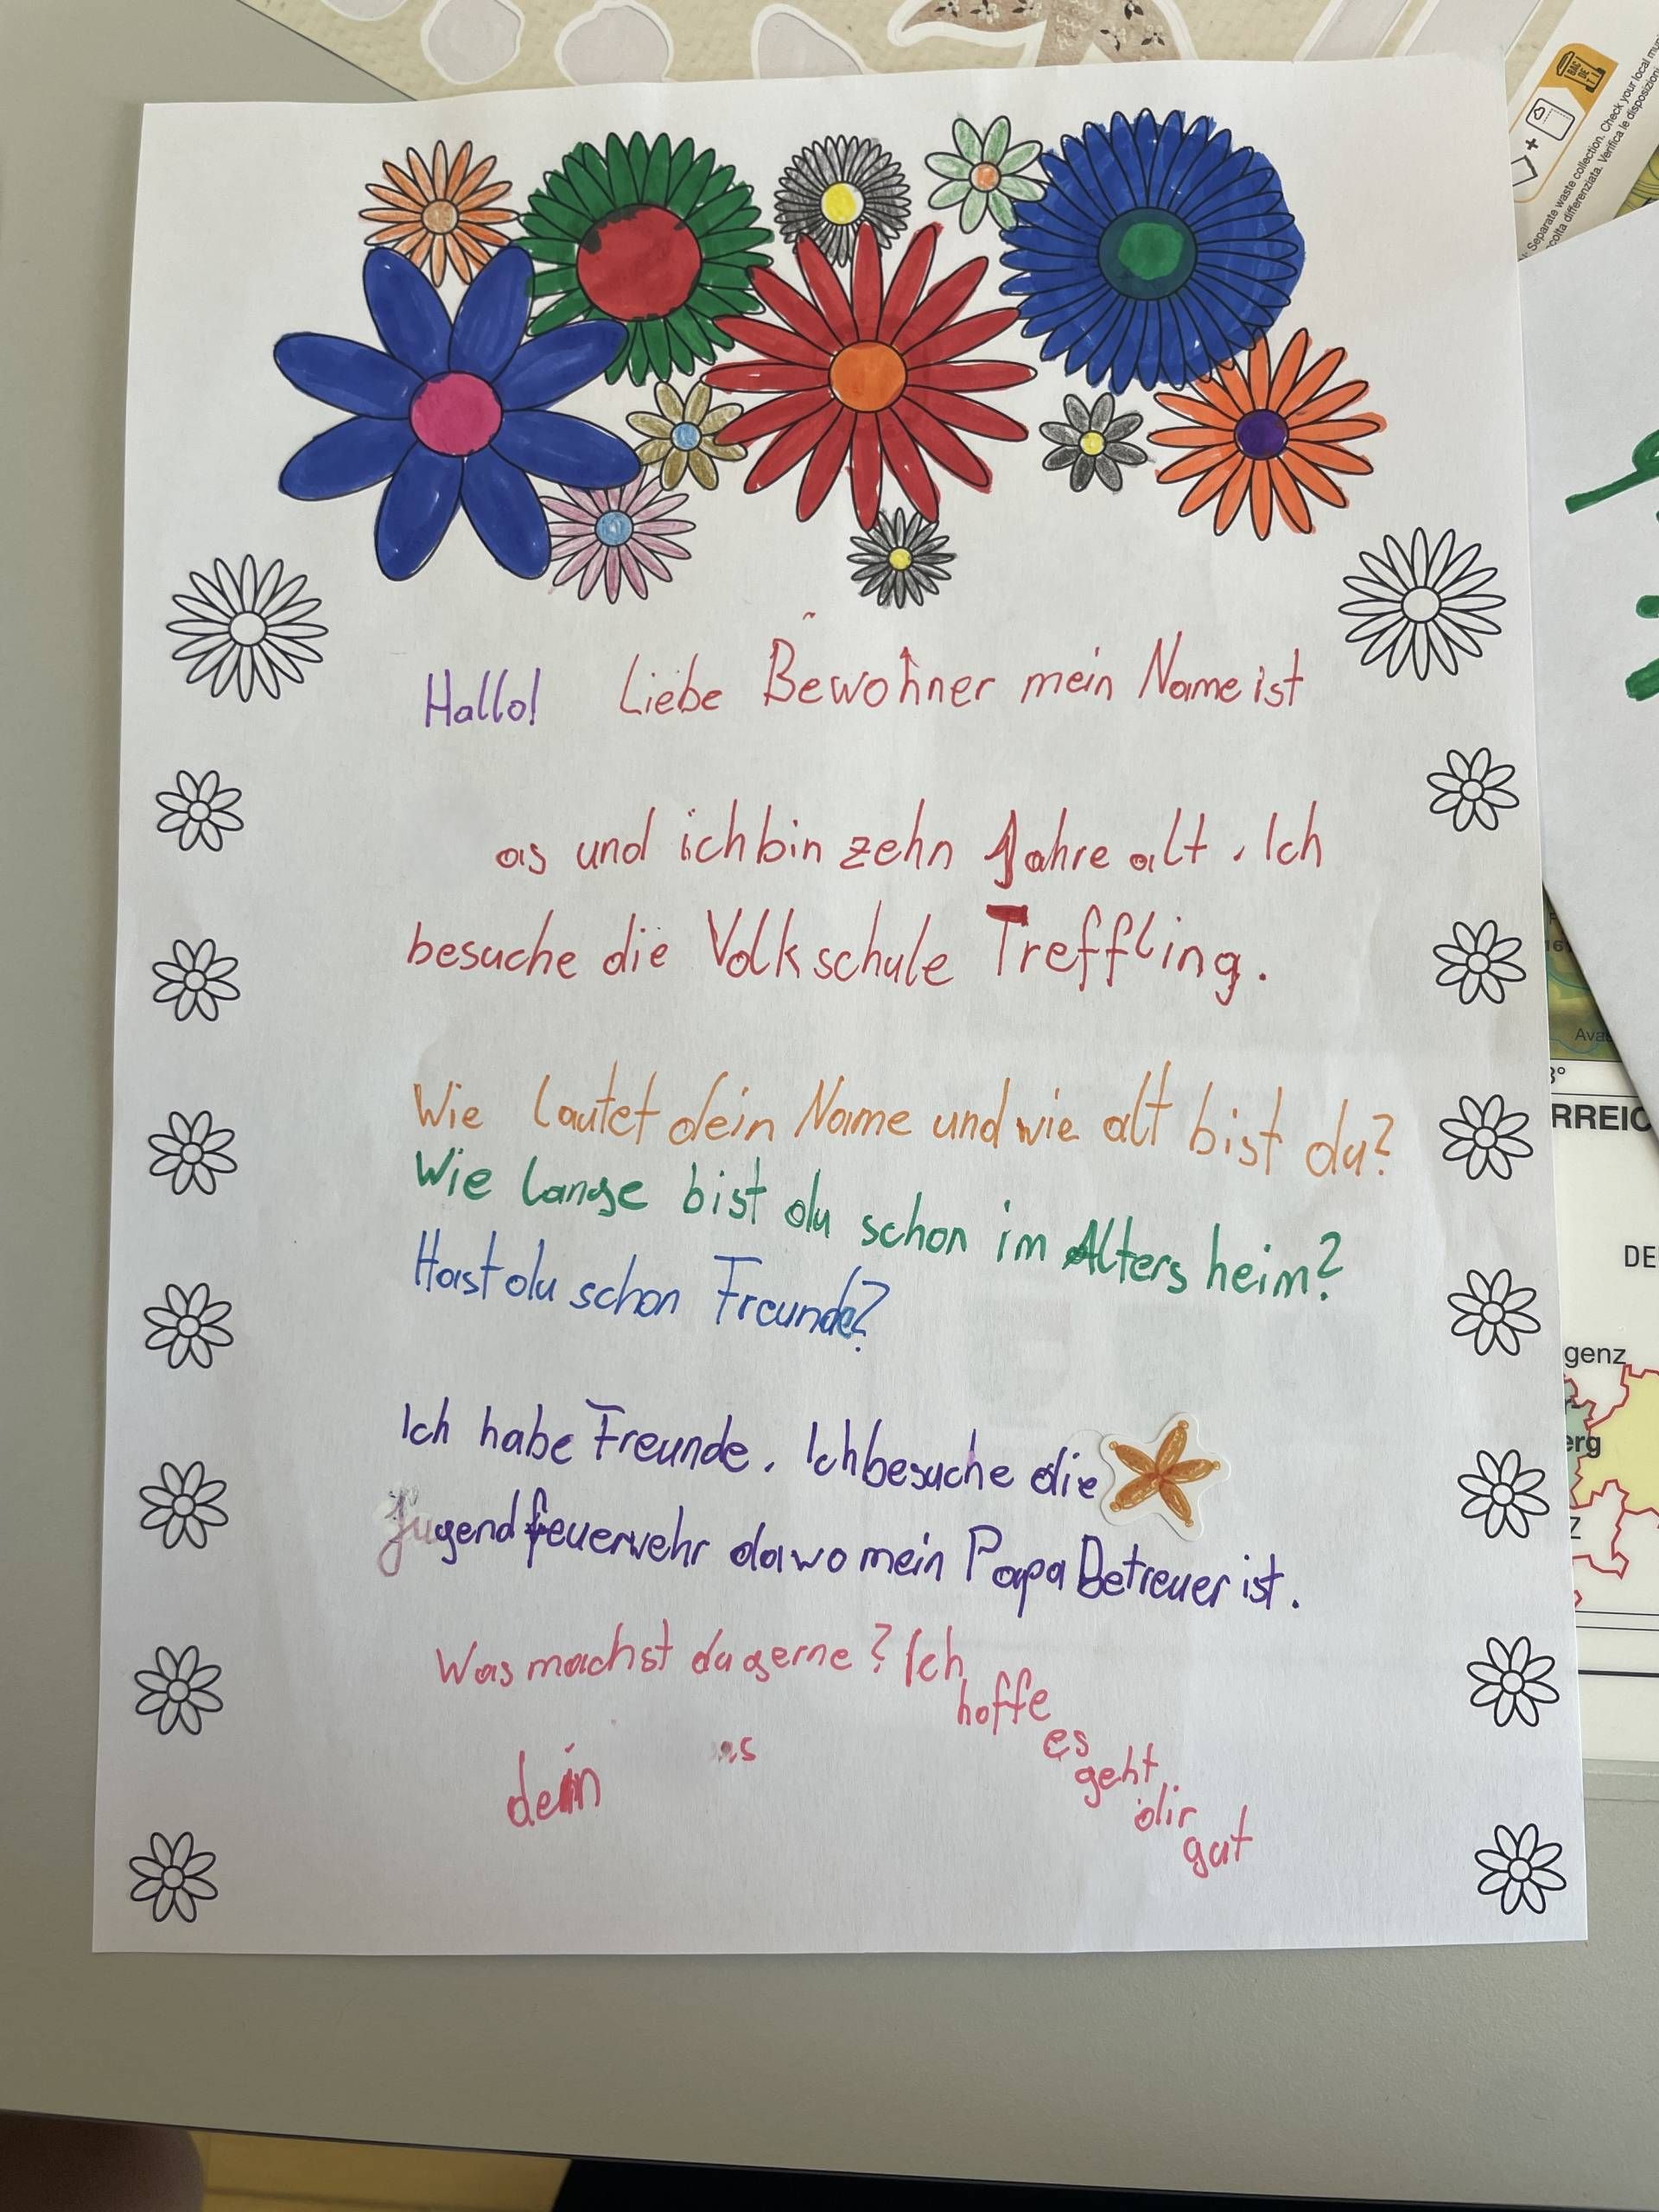 Hallo! Liebe Bewohner mein Name ist
as und ich bin zehn Jahre alt. Ich
besuche die Volkschule Treffling.
Wie lautet dein Name und wie alt bist du?
Wie lange bist du schon im Altersheim?
Hast du schon Freunde?
Ich habe Freunde. Ich besuche die
Jugendfeuerwehr da wo mein Papa Betreuer ist.
Was machst du gerne? Ich
hoffe
es
geht
dir
gut
dein as
Separate waste collection. Check your local
RREIC
DE
genz
erg